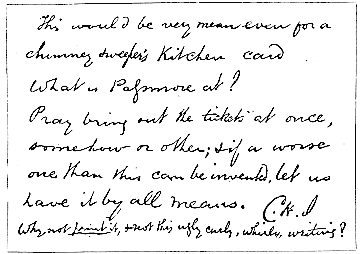 This would be very mean even for a
chimney sweeper's Kitchen card
What is Palgmore at?
Pray bring out the tickets at once,
somehow or other; & if a worse
one than this can be invented, let us
have it by all means. C.H.S
Why not print it, & not this ugly curly, whirly, writing?